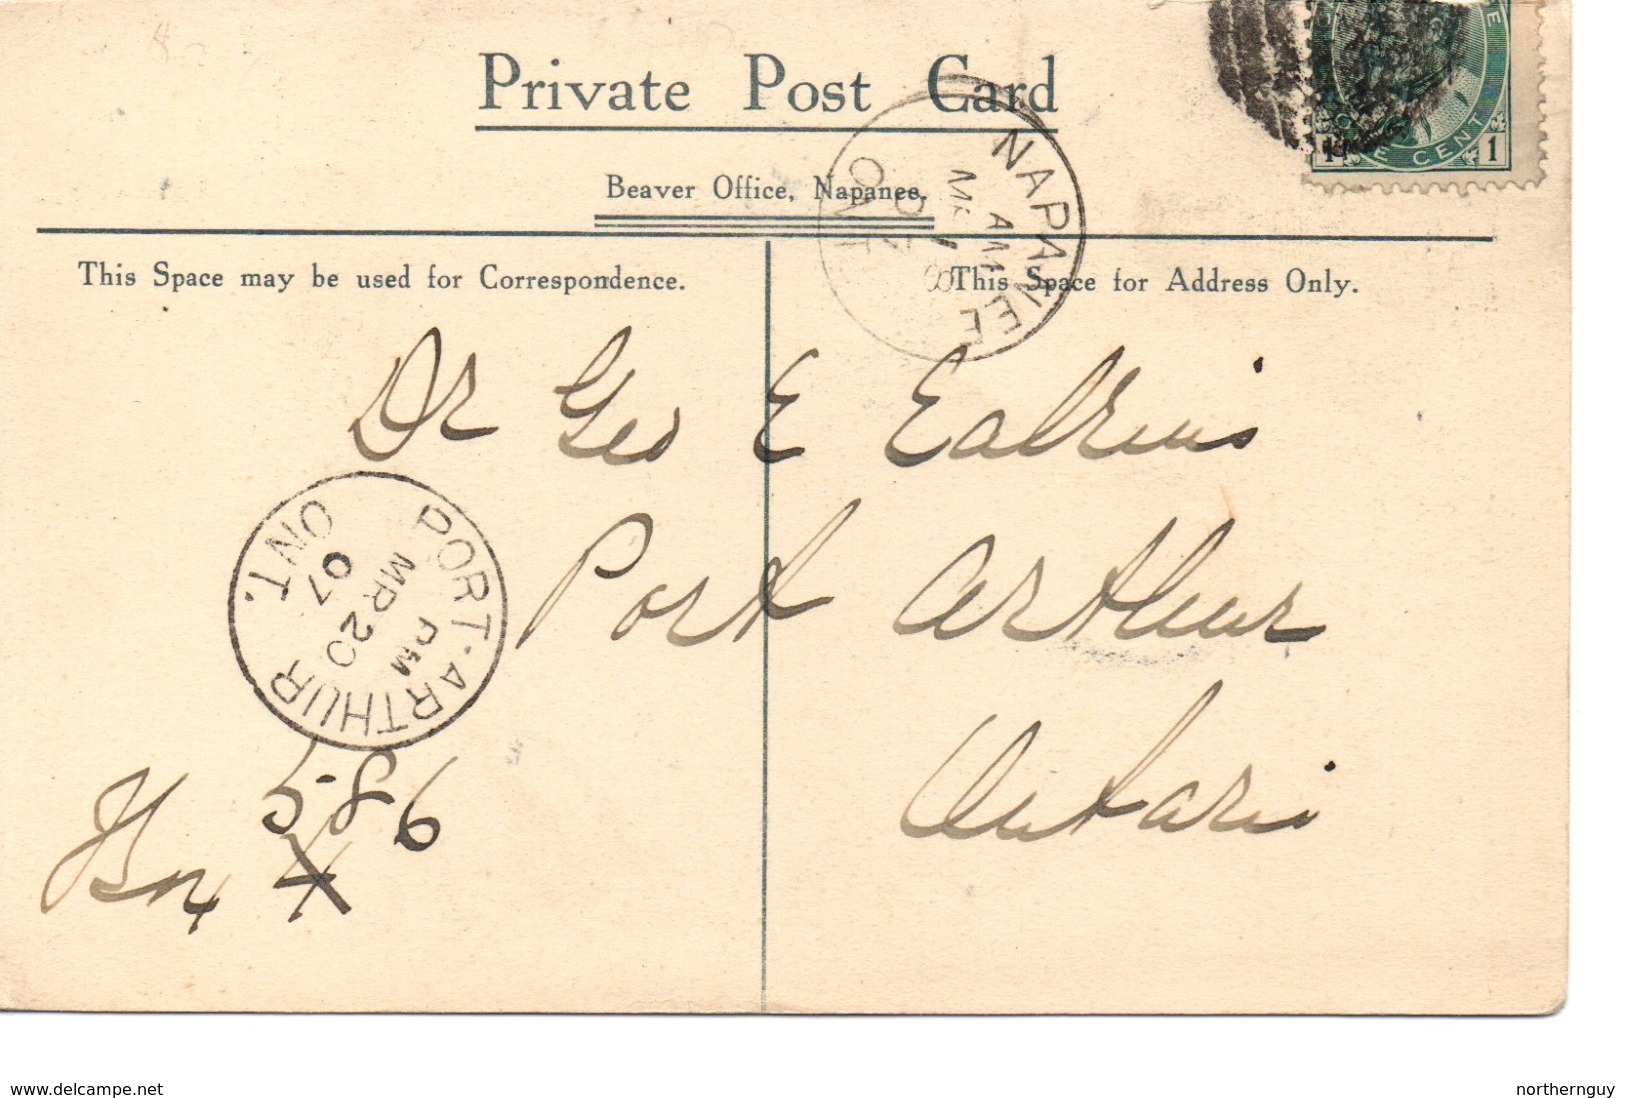 Private Post Card
Beaver Office, Napanee.
This Space may be used for Correspondence.
This Space for Address Only.
NAPANEE
AM
ONT
07
ONE CENT
1
1
Dr Geo E Eakins
Port Arthur
Ontario
PORT-ARTHUR
PM
MR 20
07
ONT.
Box
www.delcampe.net
northernguy